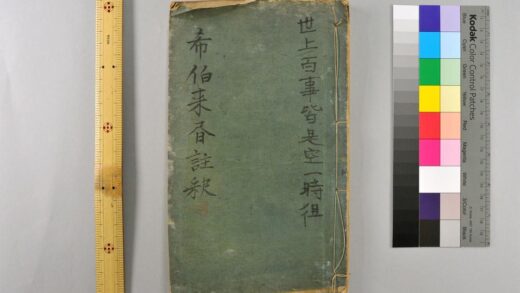 世上百事皆是空一時徂
希伯来書註釈
Kodak
Color Control Patches
Blue
Cyan
Green
Yellow
Red
Magenta
White
3/Color
Black